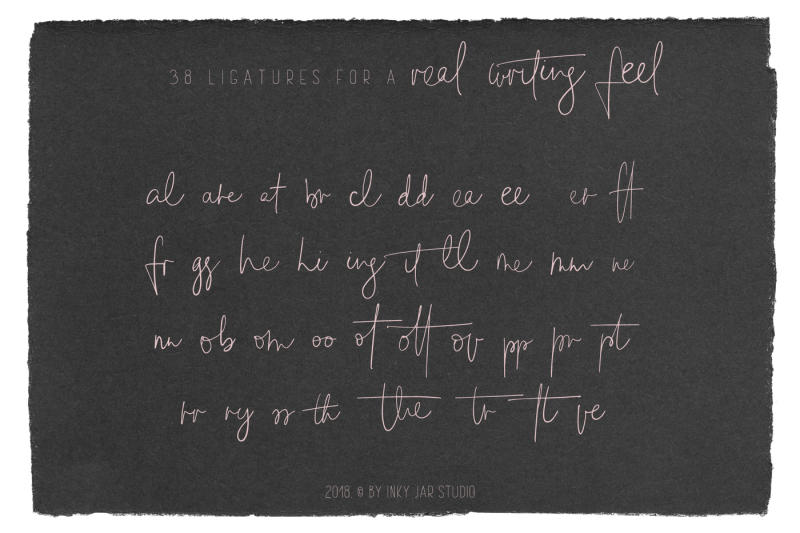 38 LIGATURES FOR A real writing feel
al are at br cl dd ea ee er ft
fr gg he hi ing it ll me mm ne
nn ob om oo ot ott ov pp pr pt
rr ry ss th the tr tt ve
2018. © BY INKY JAR STUDIO